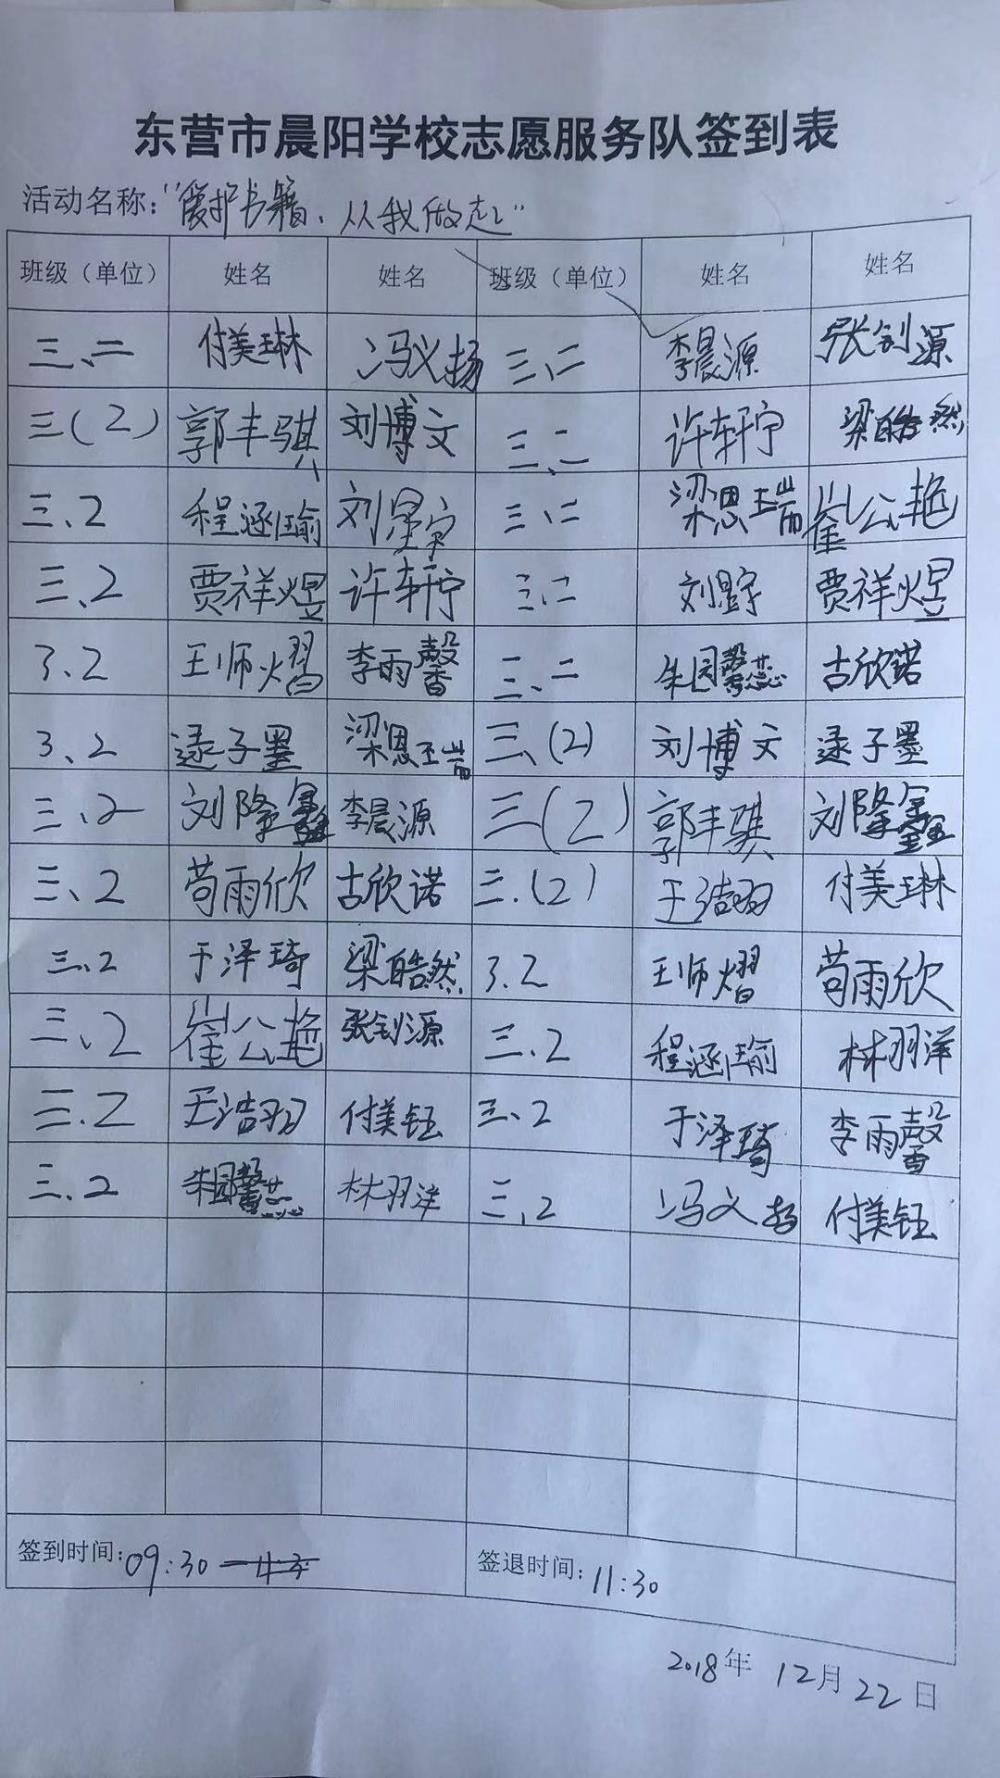 东营市晨阳学校志愿服务队签到表
活动名称："爱护书籍、从我做起"
班级（单位） 姓名 姓名 班级（单位） 姓名 姓名
三、二 付美琳 冯义扬 三、二 李晨源 张钊源
三(2) 郭丰骐 刘博文 三、二 许轩宁 梁皓然
三、2 程涵瑜 刘显宇 三、二 梁恩瑞 崔公艳
三、2 贾祥煜 许轩宁 三、二 刘显宇 贾祥煜
3.2 王师熠 李雨馨 三、二 朱园馨蕊 古欣诺
3、2 逯子墨 梁恩瑞 三、(2) 刘博文 逯子墨
三、2 刘隆鑫 李晨源 三(2) 郭丰骐 刘隆鑫
三、2 苟雨欣 古欣诺 三.(2) 于浩羽 付美琳
三、2 于泽琦 梁皓然 3.2 王师熠 苟雨欣
三、2 崔公艳 张钊源 三.2 程涵瑜 林羽洋
三.2 于浩羽 付美钰 三、2 于泽琦 李雨馨
三、2 朱园馨蕊 林羽洋 三、2 冯义扬 付美钰
签到时间：09:30 签退时间：11:30
2018年 12月22日